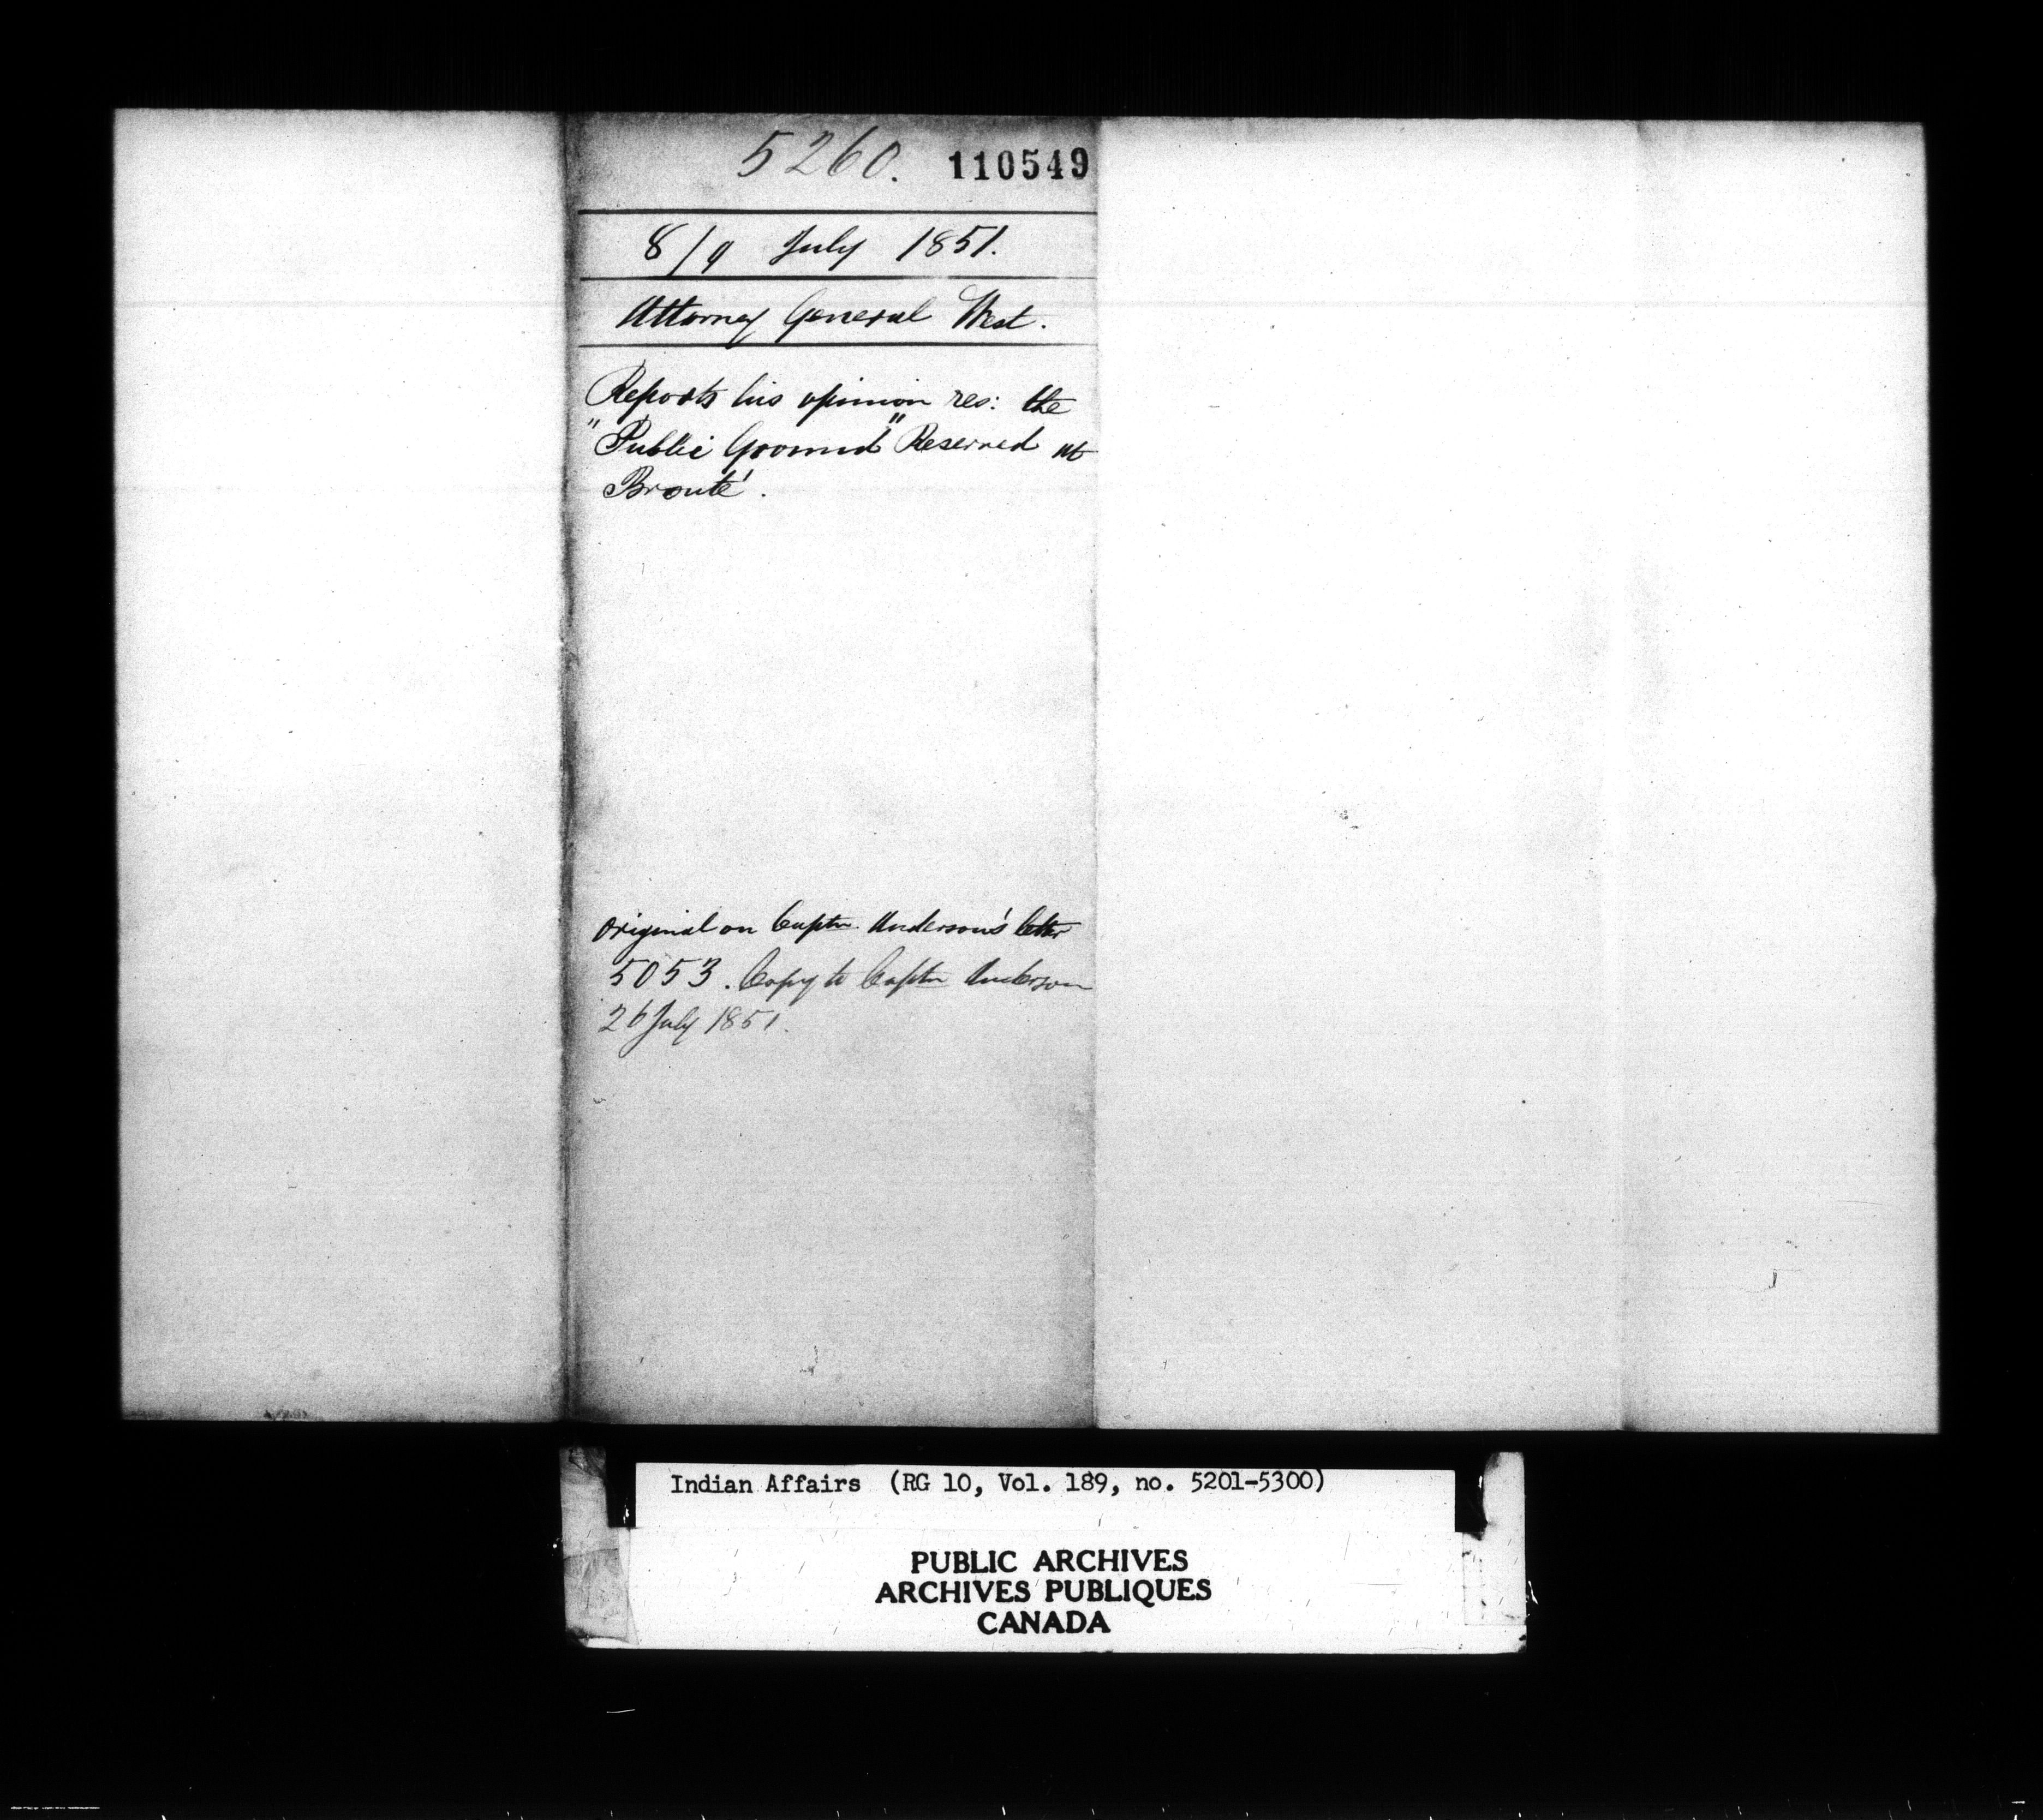 5260. 110549
8/9 July 1851.
Attorney General West.
Reports his opinion res: the
"Public Ground" Reserved at
Bronté.
Original on Captn. Anderson's letter
5053. Copy to Captn Anderson
26 July 1851.
Indian Affairs (RG 10, Vol. 189, no. 5201-5300)
PUBLIC ARCHIVES
ARCHIVES PUBLIQUES
CANADA